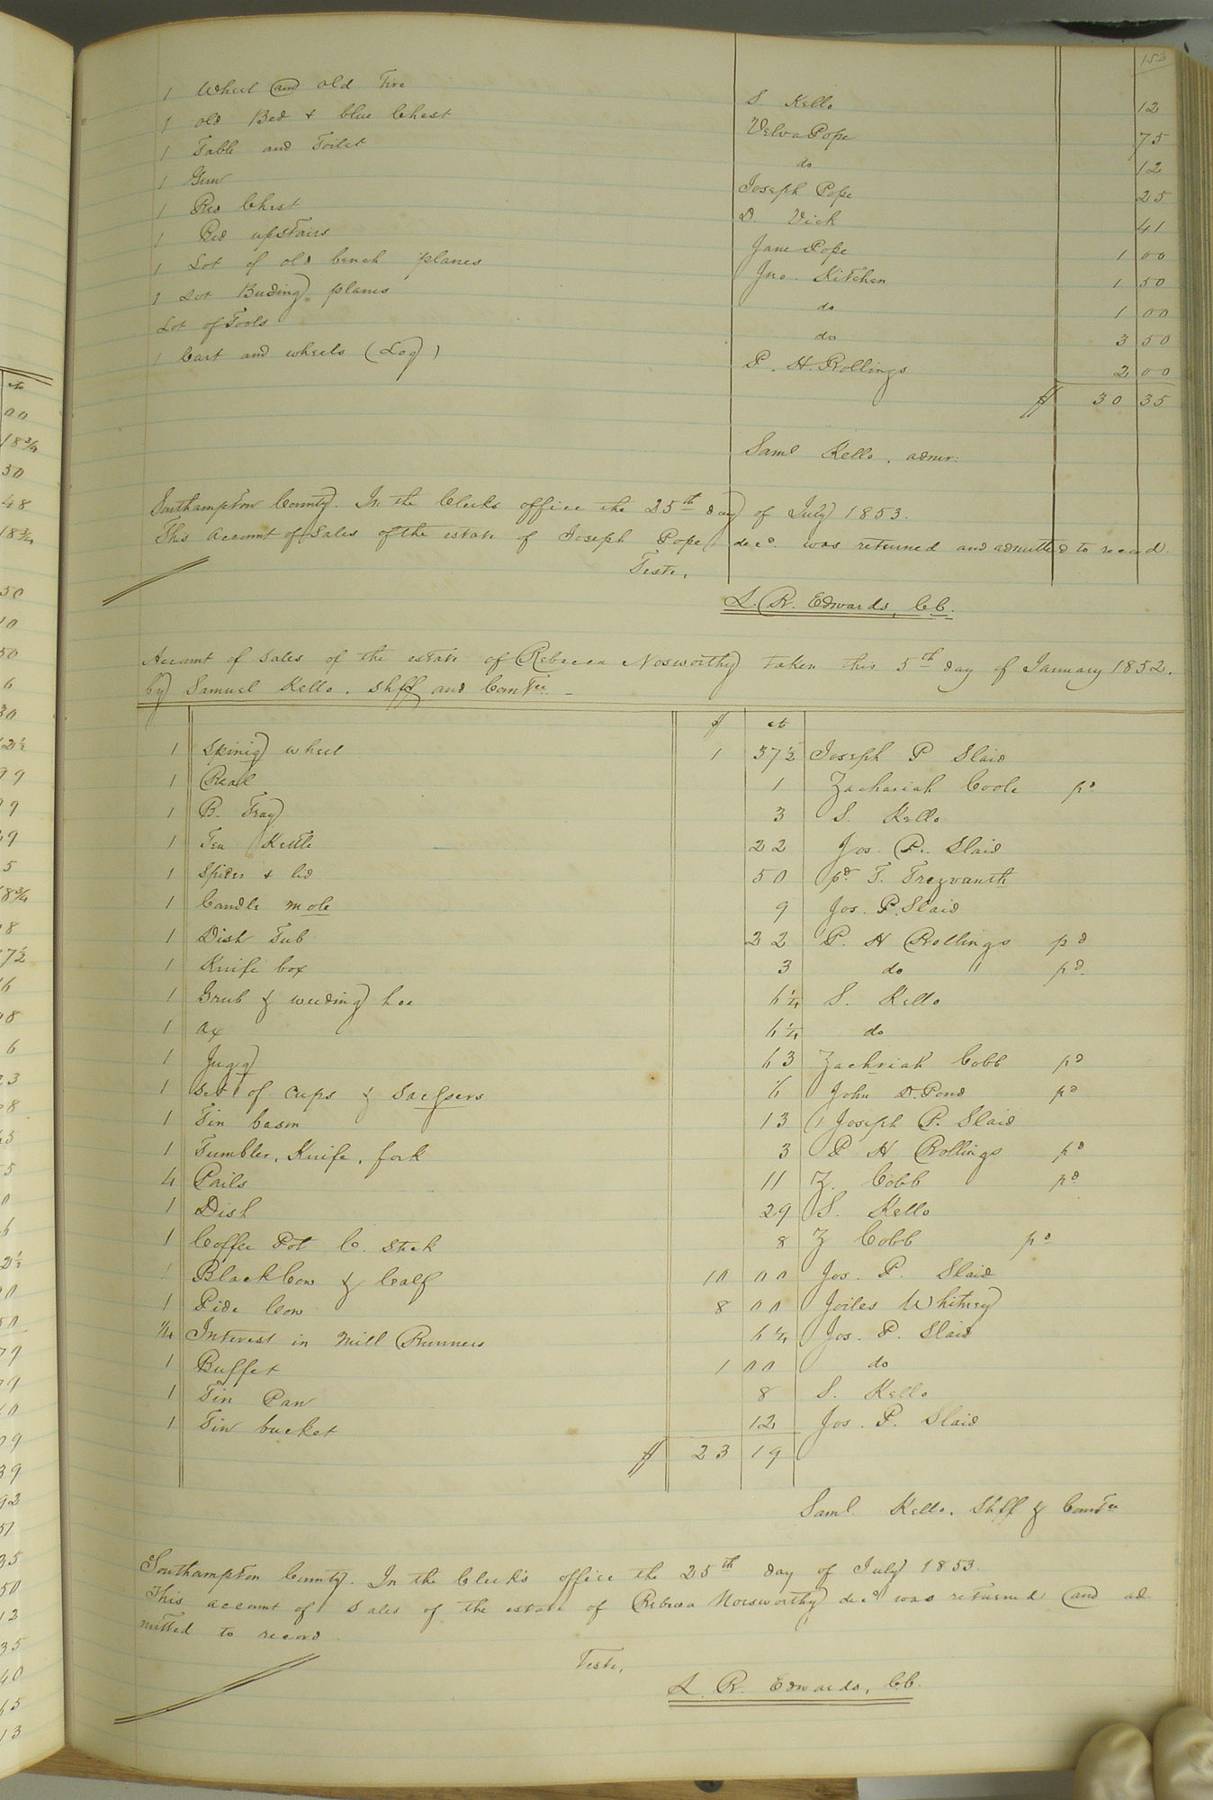 153
1 Wheel and old Tire S Kello 12
1 old Bed & blue Chest Velva Pope 75
1 Table and Toilet do 12
1 Gun Joseph Pope 25
1 Red Chest D Vick 41
1 Bed upstairs Jane Pope 1 00
1 Lot of old bench planes Jno. Kitchen 1 50
1 Lot Beeding planes do 1 00
Lot of Tools do 3 50
1 Cart and wheels (Log) P. H. Rollings 2 00
$ 30 35
Saml Kello, admr.
Southampton County. In the Clerks office the 25th day of July 1853.
This account of Sales of the estate of Joseph Pope decd. was returned and admitted to record
Teste,
L. R. Edwards, CC.
Account of sales of the estate of Rebecca Nosworthy taken this 5th day of January 1852.
by Samuel Kello. Shff and ComTee
$ ct
1 Spinig wheel 1 37½ Joseph P Slaid
1 Real 1 Zachariah Coole pd
1 B. Tray 3 S. Kello
1 Tea Kettle 22 Jos. P. Slaid
1 Spider & lid 50 pd T. Trezvanth
1 Candle mole 9 Jos. P. Slaid
1 Dish Tub 22 P. H Rollings pd
1 Knife box 3 do pd.
1 Grub & weeding hoe 6¼ S. Kello
1 ax 6¼ do
1 Jugg 63 Zachriah Cobb pd
1 set of cups & Saefsers 6 John D. Pond pd
1 Tin bason 13 Joseph P. Slaid
1 Tumbler, Knife, fork 3 P H Rollings pd
4 Pails 11 Z. Cobb pd
1 Dish 29 S. Kello
1 Coffee Pot C. Stick 8 Z Cobb pd
1 Black Cow & Calf 10 00 Jos. P. Slaid
1 Pide Cow 8 00 Joiles Whitney
¼ Interest in Mill Runners 6¼ Jos. P. Slaid
1 Buffet 1 00 do
1 Tin Pan 8 S. Kello
1 Tin bucket 12 Jos. P. Slaid
$ 23 19
Saml. Kello. Shff & ComTee
Southampton County. In the Clerk's office the 25th day of July 1853.
This account of sales of the estate of Rebecca Norsworthy decd was returned and ad
mitted to record
Teste,
L. R. Edwards, CC.